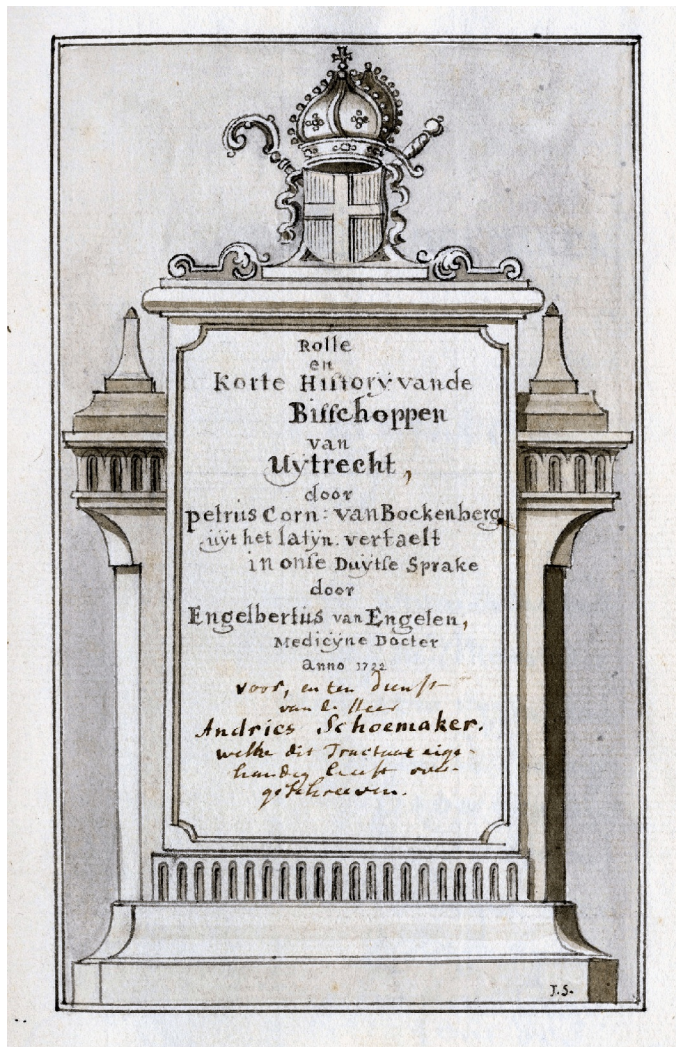 Rolle
en
Korte Hiſtorÿ vande
Biſſchoppen
van
Uÿtrecht,
door
petrus Corn: van Bockenberg
uÿt het latÿn. vertaelt
in onſe Duÿtſe Sprake
door
Engelbertus van Engelen,
Medicÿne Docter
anno 1722
voor, en ten dienst
van de Heer
Andries Schoemaker.
welke dit Tractaat eige-
handig heeft over-
geschreeven.
J.S.